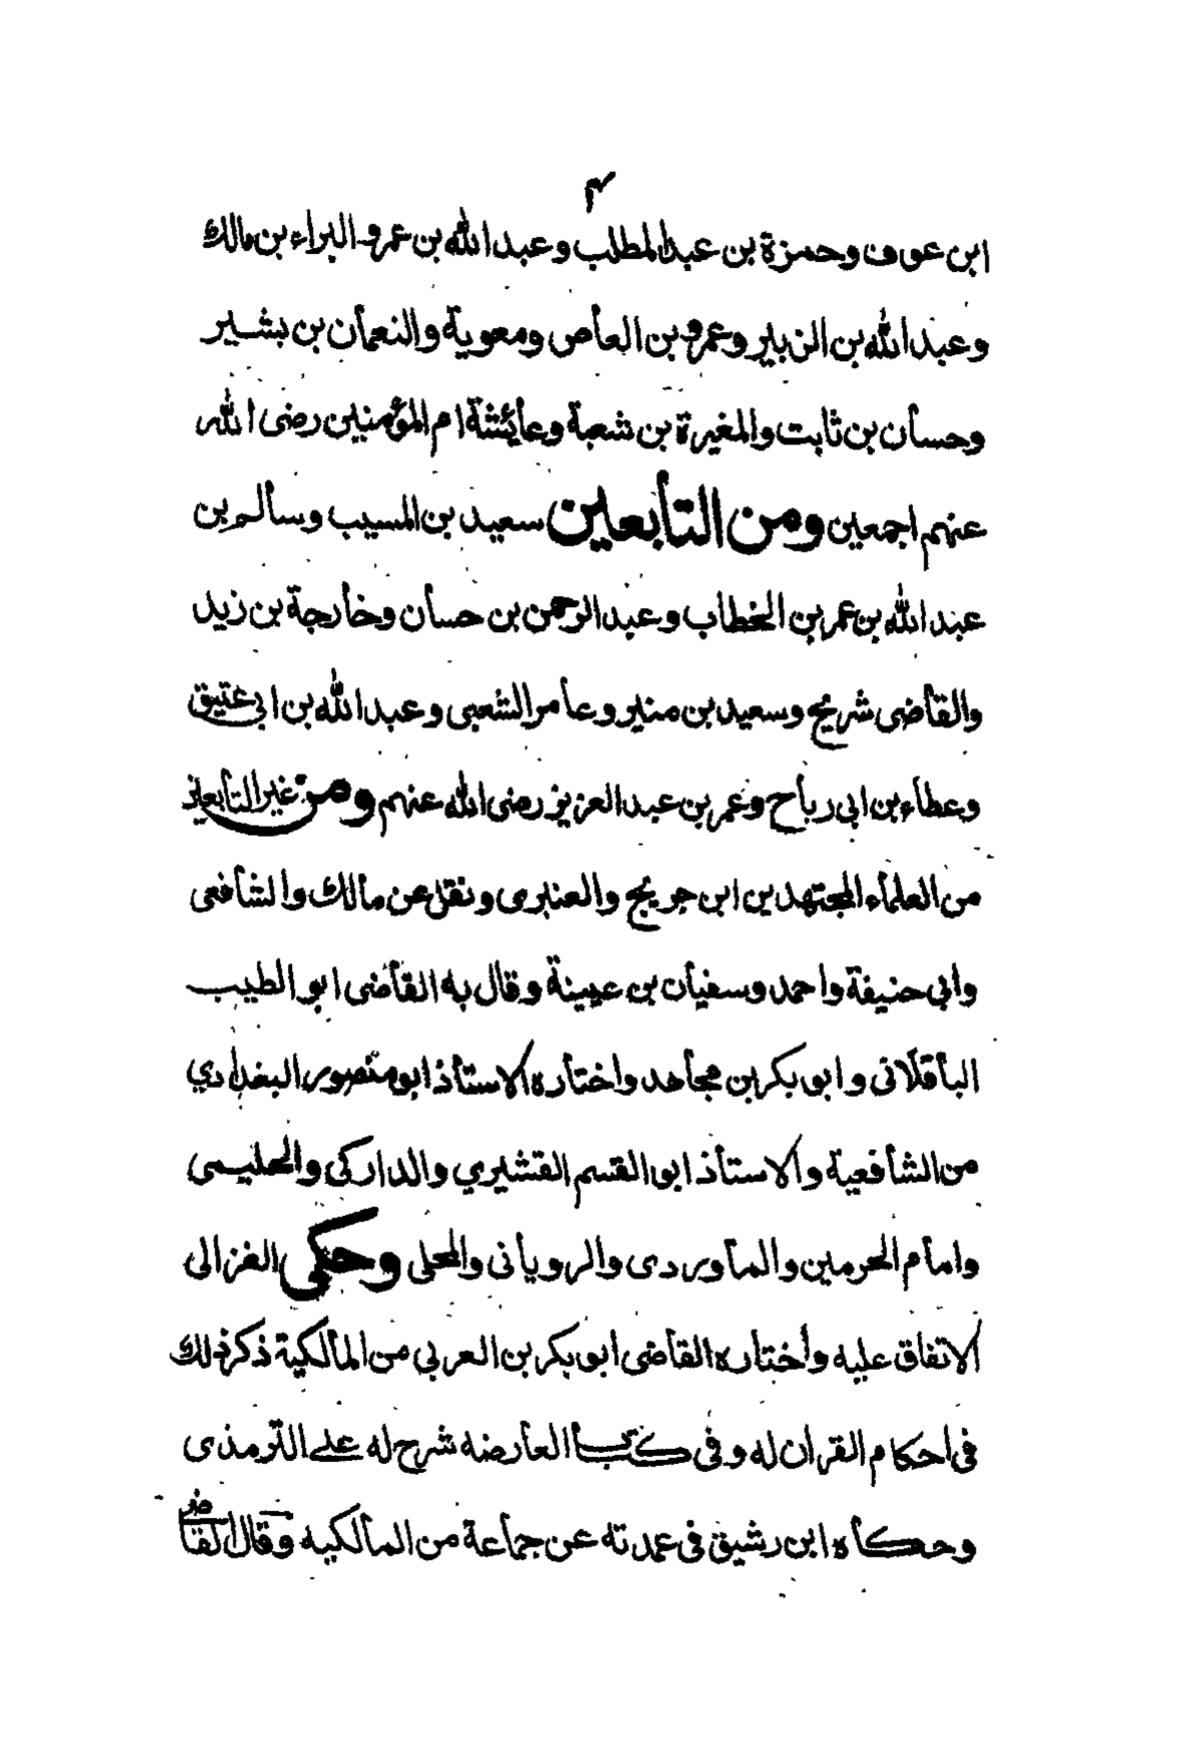 ٣
ابن عوف وحمزة بن عبد المطلب وعبد الله بن عمر والبراء بن مالك
وعبد الله بن الزبير وعمرو بن العاص ومعوية والنعمان بن بشير
وحسان بن ثابت والمغيرة بن شعبة وعائشة ام المؤمنين رضى الله
عنهم اجمعين ومن التابعين سعيد بن المسيب وسالم بن
عبد الله بن عمر بن الخطاب وعبد الرحمن بن حسان وخارجة بن زيد
والقاضى شريح وسعيد بن منير وعامر الشعبى وعبد الله بن ابي عتيق
وعطاء بن ابى رباح وعمر بن عبد العزيز رضى الله عنهم ومن غير التابعين
من العلماء المجتهدين ابن جريج والعنبرى ونقل عن مالك والشافعى
وابي حنيفة واحمد وسفيان بن عيينة وقال به القاضى ابو الطيب
الباقلانى وابو بكر بن مجاهد واختاره الاستاذ ابو منصور البغدادي
من الشافعية والاستاذ ابو القسم القشيري والداركى والحليمى
وامام الحرمين والماوردى والرويانى والمحلى وحكى الغزالى
الاتفاق عليه واختاره القاضى ابو بكر بن العربي من المالكية ذكر ذلك
فى احكام القران له وفى كتاب العارضه شرح له على الترمذى
وحكاه ابن رشيق فى عمدته عن جماعة من المالكيه وقال القاضى